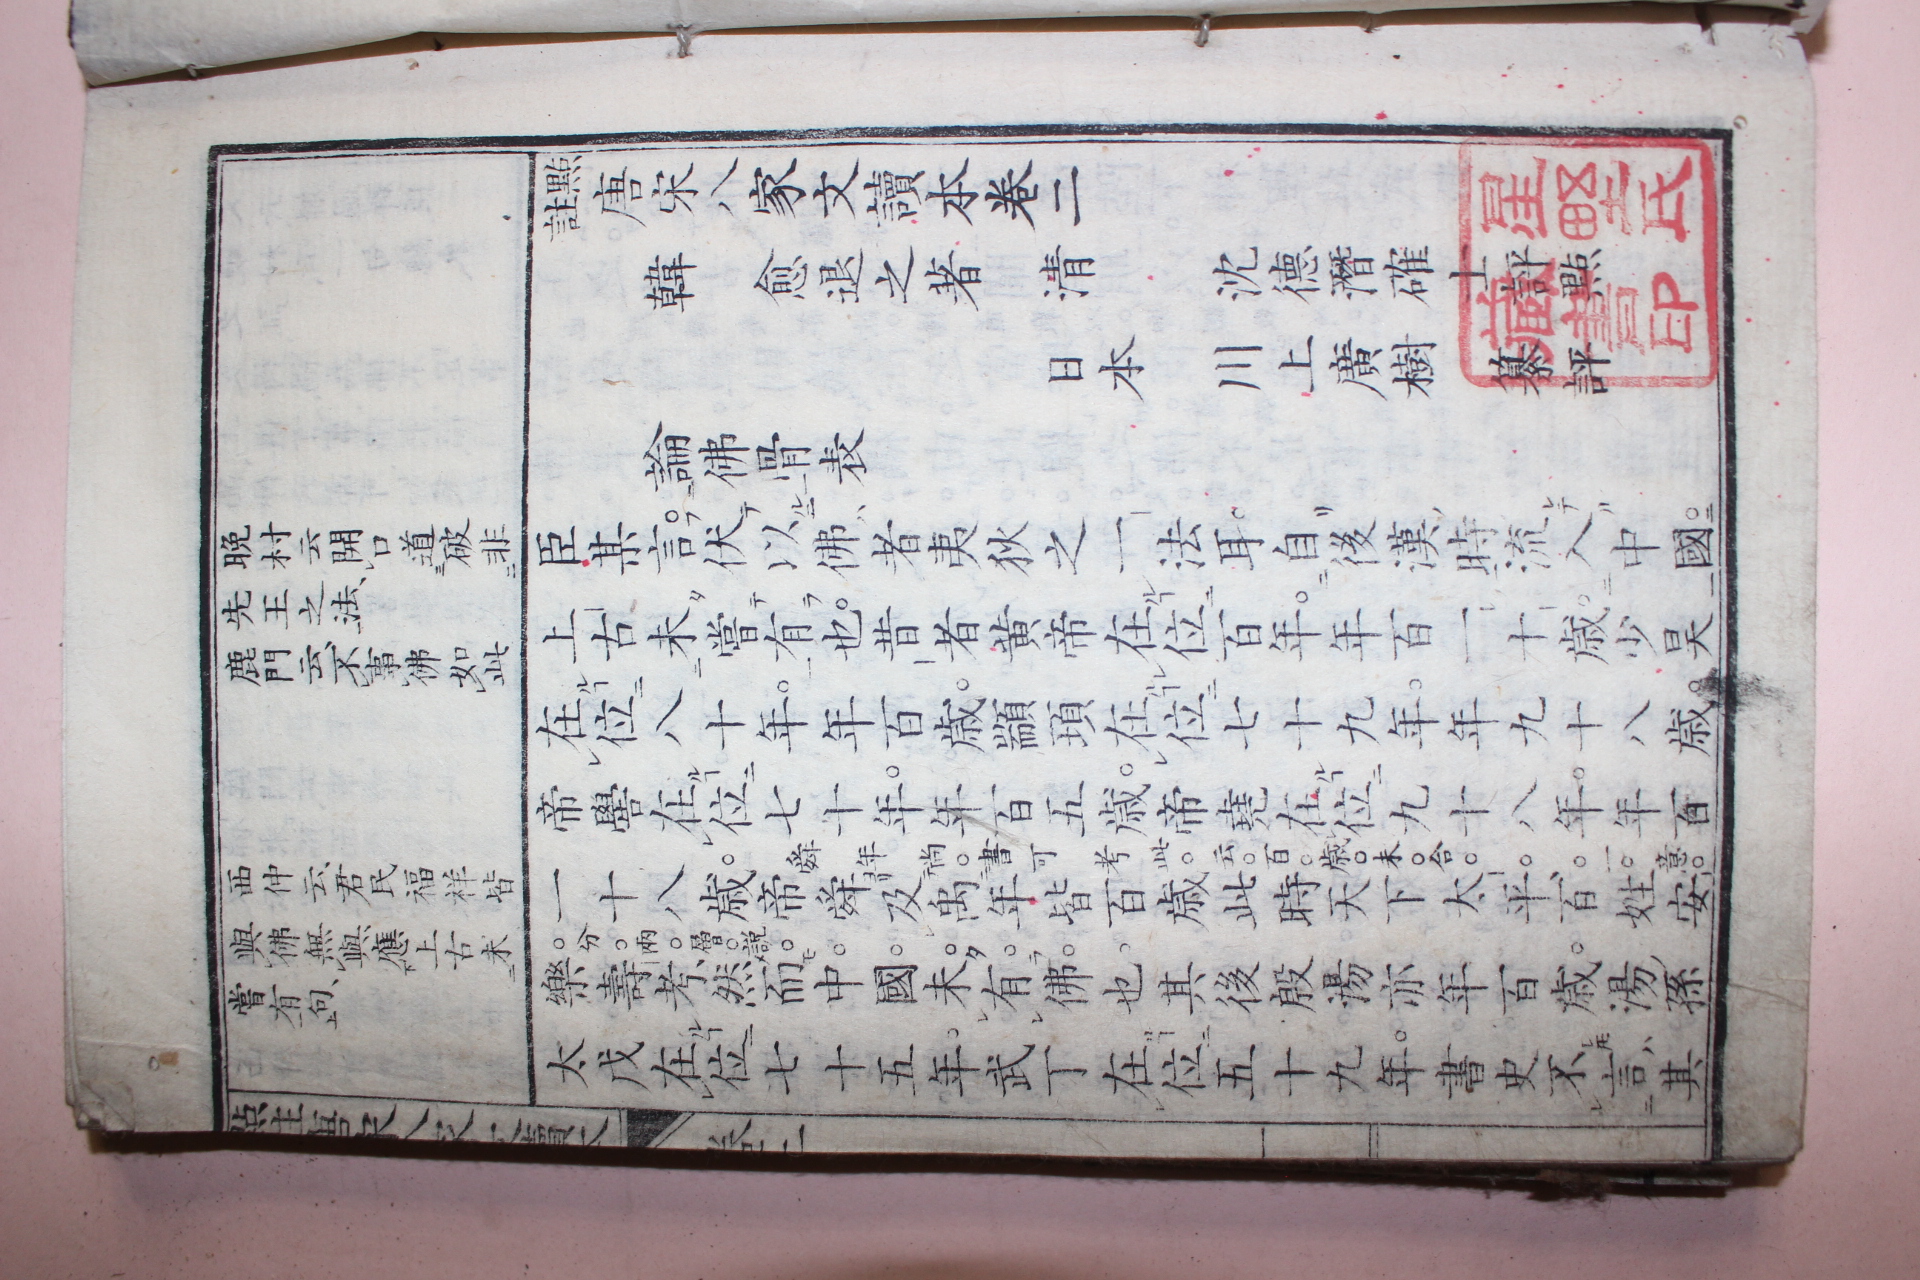 點註唐宋八家文讀本卷二
韓愈退之著 清 沈德潛確士評點
日本 川上廣樹 纂評
論佛骨表
臣某言伏以佛者夷狄之一法耳自後漢時流入中國
上古未嘗有也昔者黃帝在位百年年百一十歲少昊
在位八十年年百歲顓頊在位七十九年年九十八歲
帝嚳在位七十年年百五歲帝堯在位九十八年年百
一十八歲帝舜及禹年皆百歲此時天下太平百姓安
舜年尚書可考此云百歲未合 一意
樂壽考然而中國未有佛也其後殷湯亦年百歲湯孫
分兩層說
太戊在位七十五年武丁在位五十九年書史不言其
晚村云開口道破非
先王之法
鹿門云不事佛如此
西仲云君民福祥皆
與佛無與應上古未
嘗有句
點註唐宋八家文讀本 卷二
星野氏
藏書印